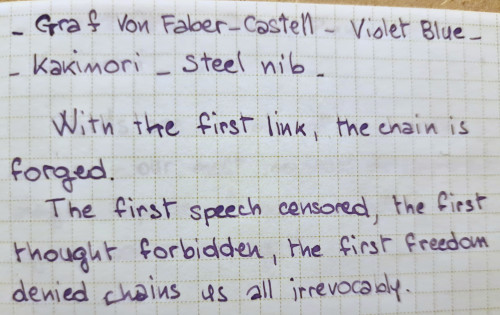 - Graf von Faber-Castell - Violet Blue -
- Kakimori - Steel nib -
With the first link, the chain is
forged.
The first speech censored, the first
thought forbidden, the first freedom
denied chains us all irrevocably.